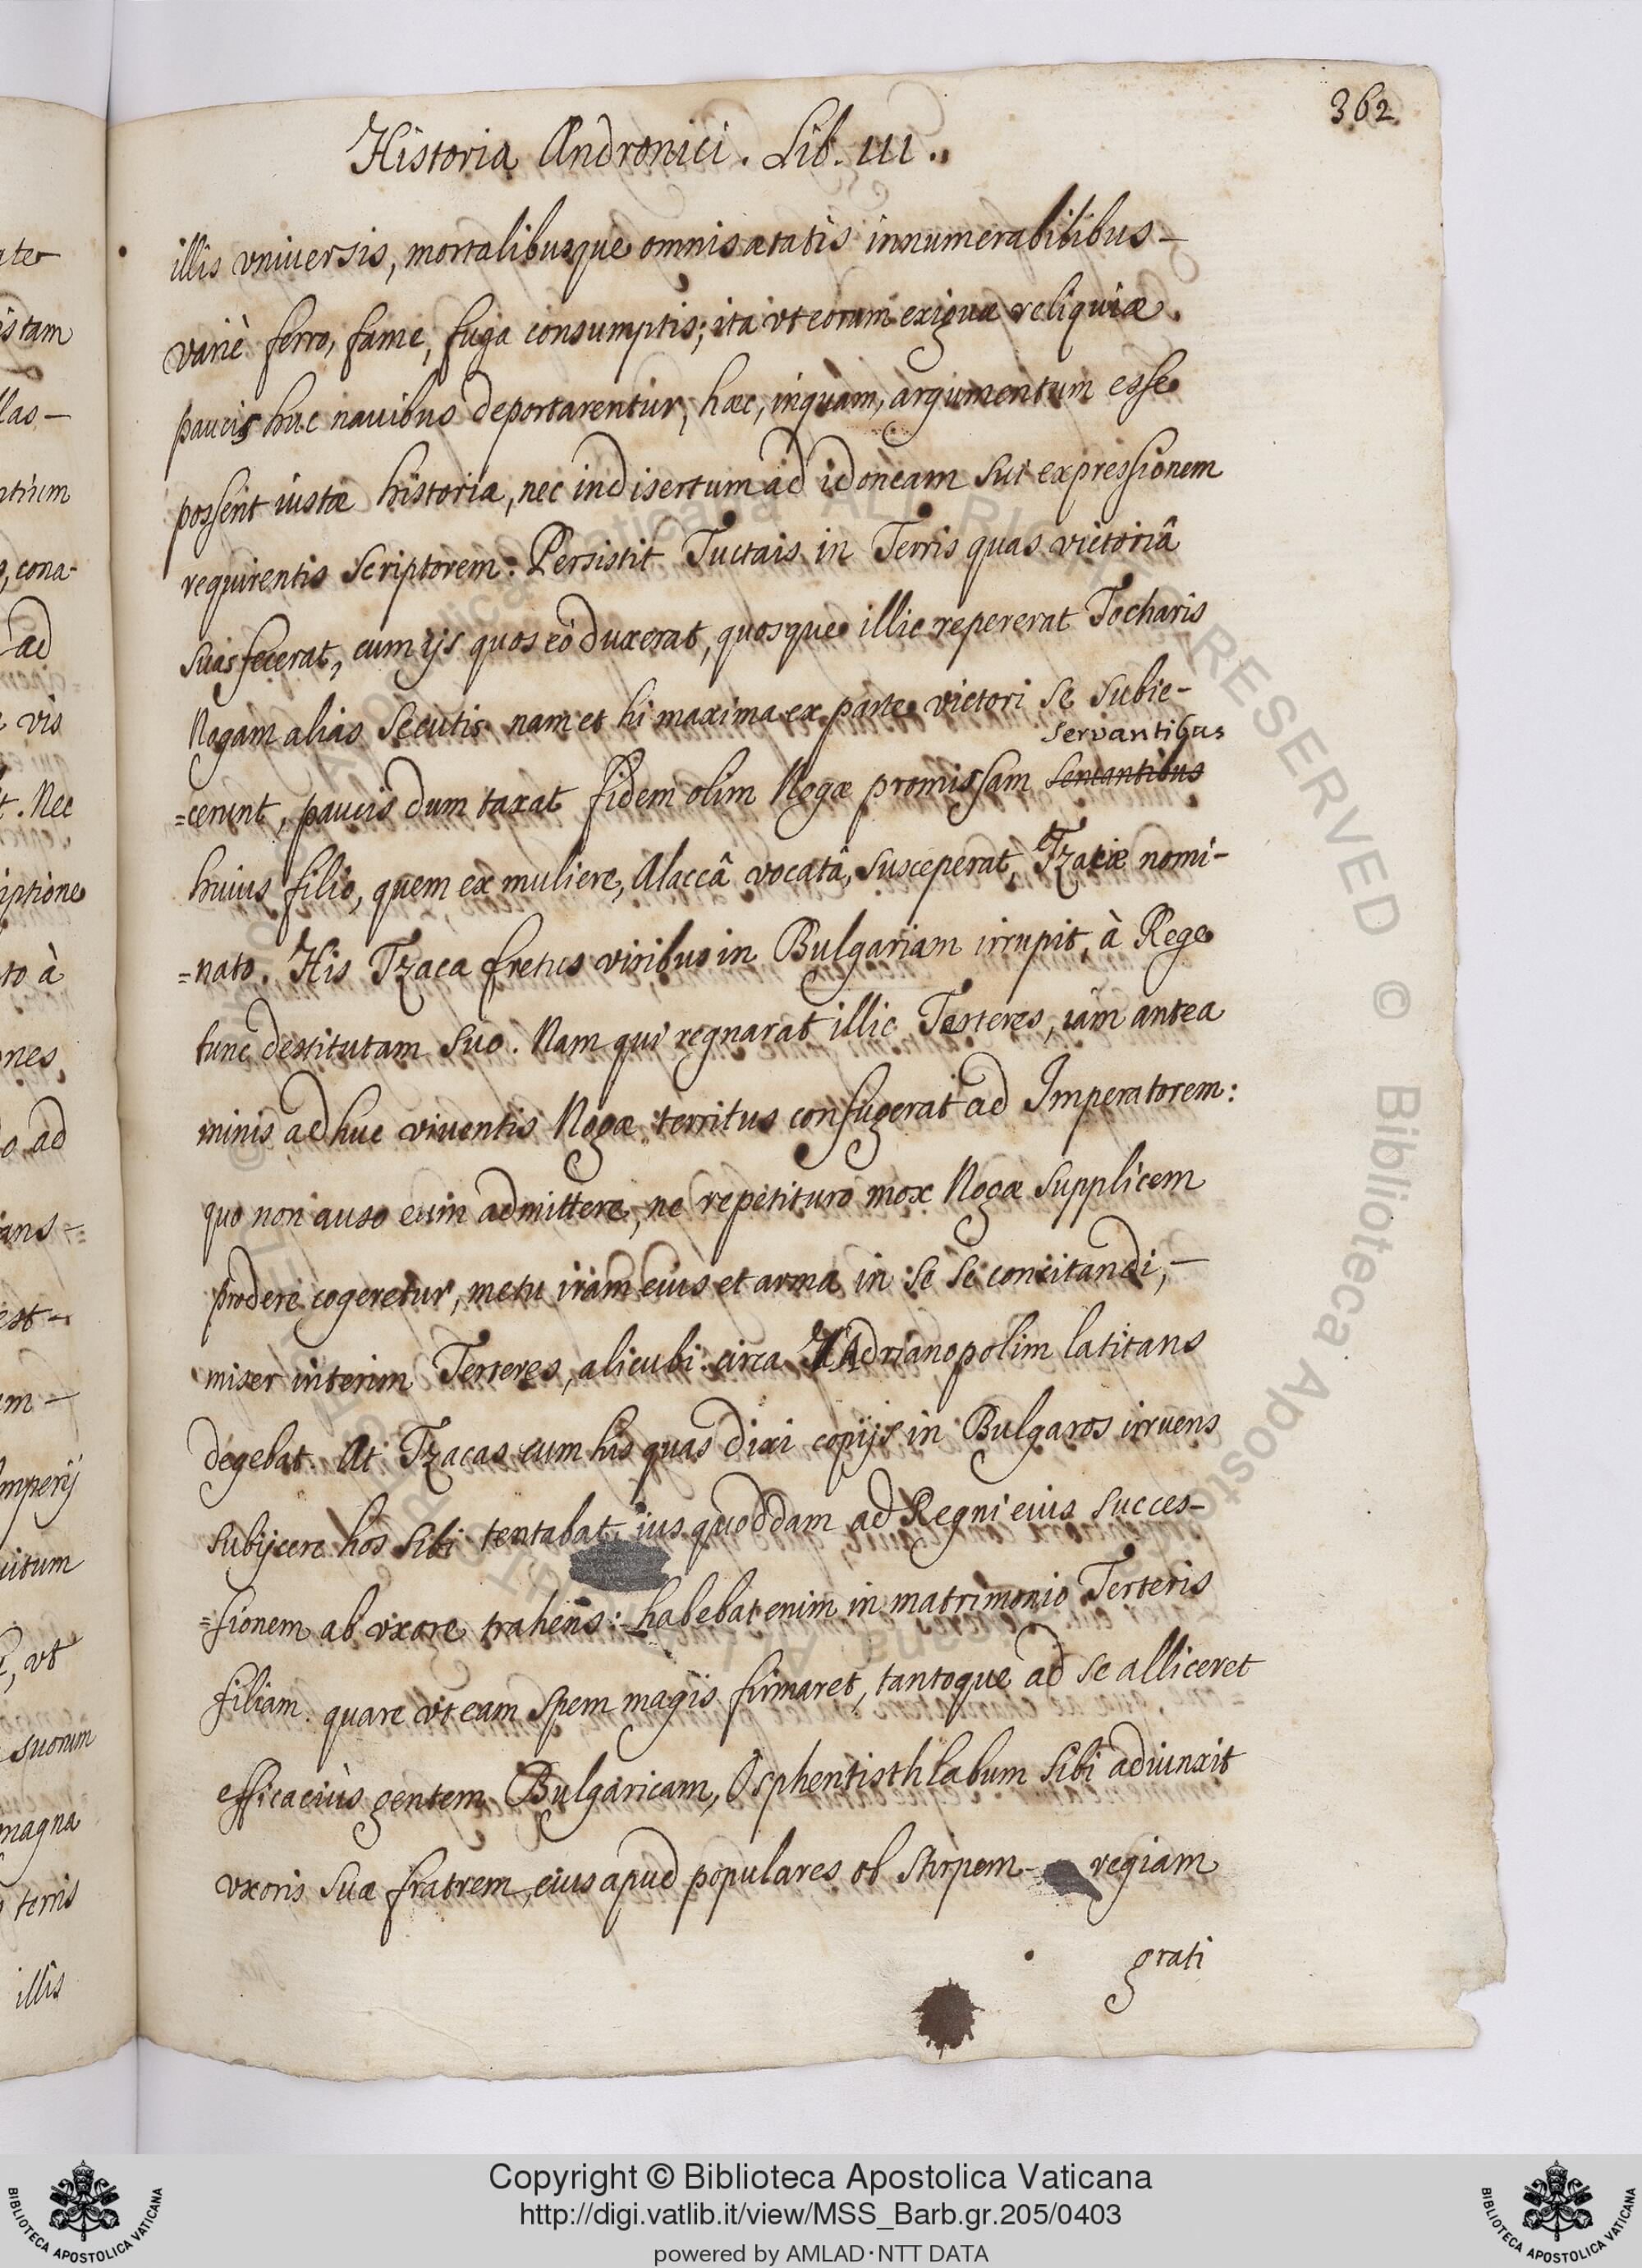 362
Historia Andronici. Lib. III.
illis vniuersis, mortalibusque omnis ætatis innumerabilibus -
variè ferro, fame, fuga consumptis; ita vt eorum exiguæ reliquiæ
paucis huc nauibus deportarentur, hæc, inquam, argumentum esse
possent iustæ historiæ, nec indisertum ad idoneam sui expressionem
requirentis scriptorem. Persistit Tuctais in Terris quas victoriâ
suas fecerat, cum ijs quos eò duxerat, quosque illic repererat Tocharis
Nogam alias secutis. nam et hi maxima ex parte victori se subie-
servantibus
=cerunt, paucis dum taxat fidem olim Nogæ promissam
huius filio, quem ex muliere, Alaccâ vocatâ, susceperat, Tzacæ nomi-
=nato. His Tzaca fretus viribus in Bulgariam irrupit, à Rege
tunc destitutam suo. Nam qui regnarat illic Terteres, iam antea
minis adhuc viuentis Nogæ territus confugerat ad Imperatorem:
quo non auso eum admittere, ne repetituro mox Nogæ supplicem
prodere cogeretur, metu iram eius et arma in se se concitandi, -
miser interim Terteres, alicubi circa Adrianopolim latitans
degebat. At Tzacas cum his quas dixi copijs in Bulgaros irruens
subijcere hos sibi tentabat, ius quoddam ad Regni eius succes-
=sionem ab vxore trahens: habebat enim in matrimonio Terteris
filiam. quare vt eam spem magis firmaret, tantoque ad se alliceret
efficaciùs gentem Bulgaricam, Osphentisthlabum sibi adiunxit
vxoris suæ fratrem, eius apud populares ob stirpem - regiam
grati
ate
istam
las -
ntium
, cona-
ad
vis
t. Nec
iptione
to à
ones
o ad
ans -
est -
m -
Imperij
uitum
, vt
suorum
magna
terris
illis
© Biblioteca Apostolica Vaticana ALL RIGHTS RESERVED
Copyright © Biblioteca Apostolica Vaticana
http://digi.vatlib.it/view/MSS_Barb.gr.205/0403
powered by AMLAD·NTT DATA
BIBLIOTECA APOSTOLICA VATICANA
BIBLIOTECA APOSTOLICA VATICANA